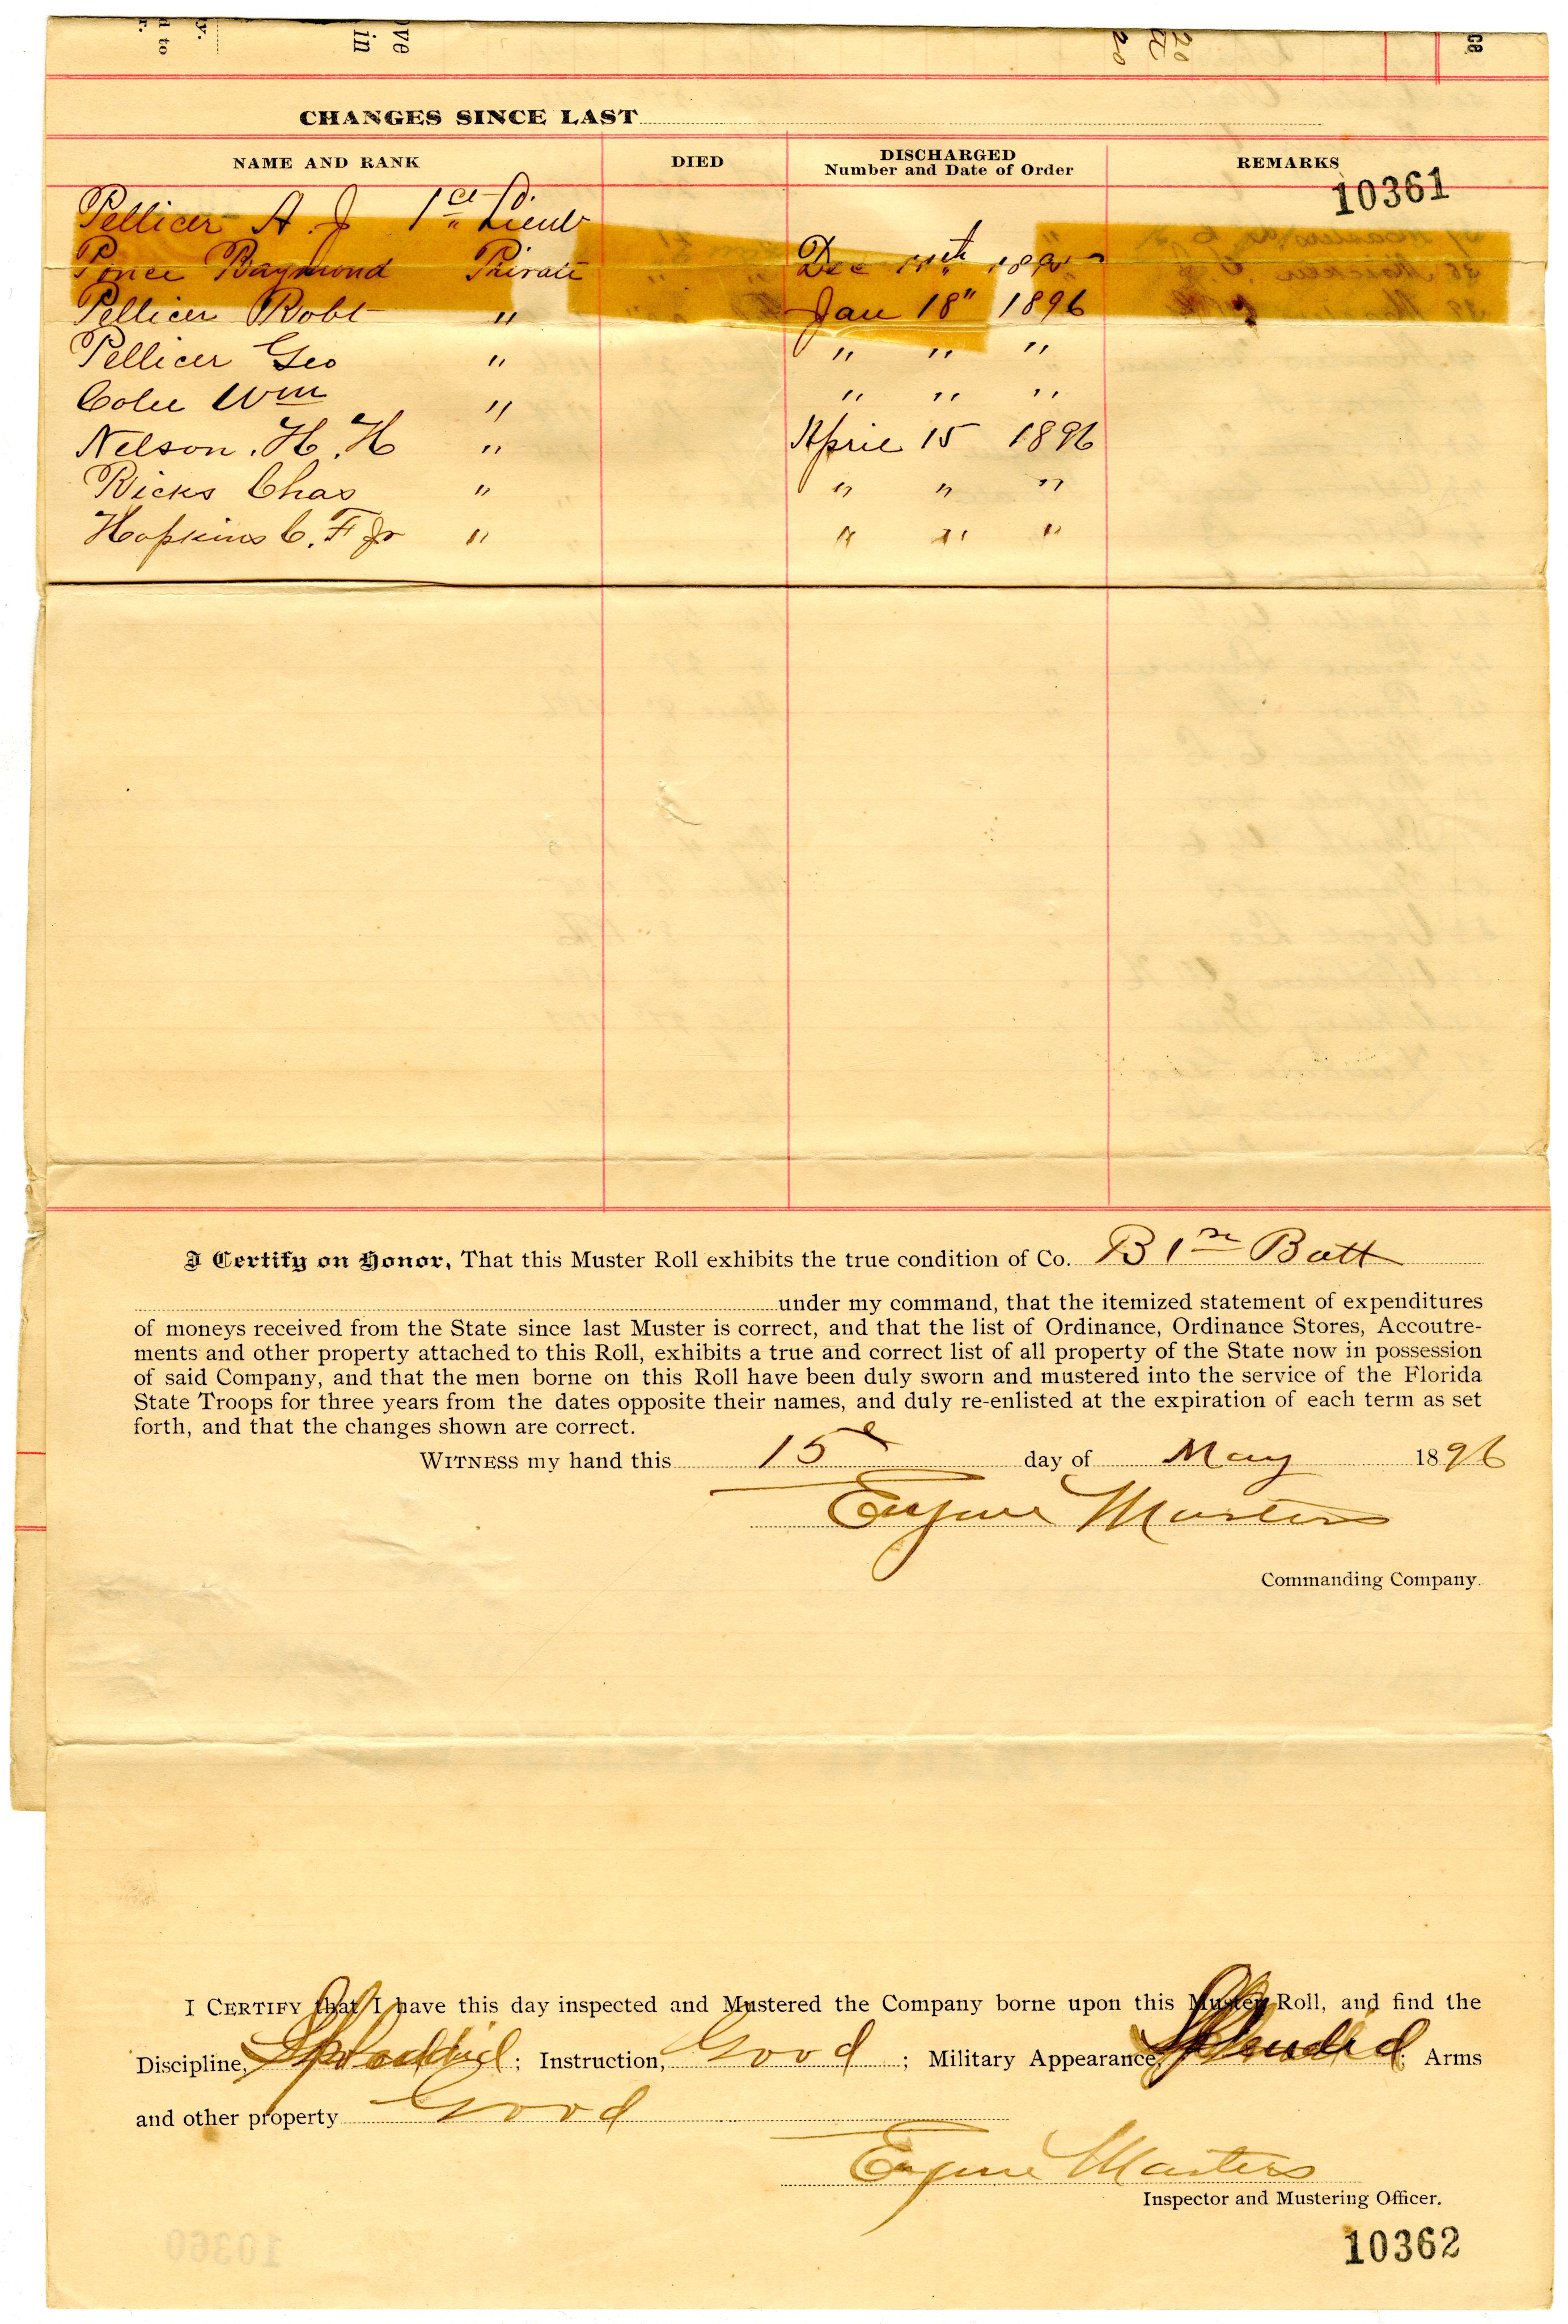 CHANGES SINCE LAST
NAME AND RANK DIED DISCHARGED Number and Date of Order REMARKS
10361
Pellicer A. J 1st Lieut
Ponce Raymond Private Dec 11th 189
Pellicer Robt " Jan 18" 1896
Pellicer Geo " " " "
Colee Wm " " " "
Nelson. H. H " April 15 1896
Ricks Chas " " " "
Hopkins C. F Jr " " " "
I Certify on Honor, That this Muster Roll exhibits the true condition of Co. B 1st Batt
under my command, that the itemized statement of expenditures
of moneys received from the State since last Muster is correct, and that the list of Ordinance, Ordinance Stores, Accoutre-
ments and other property attached to this Roll, exhibits a true and correct list of all property of the State now in possession
of said Company, and that the men borne on this Roll have been duly sworn and mustered into the service of the Florida
State Troops for three years from the dates opposite their names, and duly re-enlisted at the expiration of each term as set
forth, and that the changes shown are correct.
WITNESS my hand this 15 day of May 1896
Eugene Masters
Commanding Company.
I CERTIFY that I have this day inspected and Mustered the Company borne upon this Muster Roll, and find the
Discipline, Splendid; Instruction, Good; Military Appearance, Splendid; Arms
and other property Good
Eugene Masters
Inspector and Mustering Officer.
10362